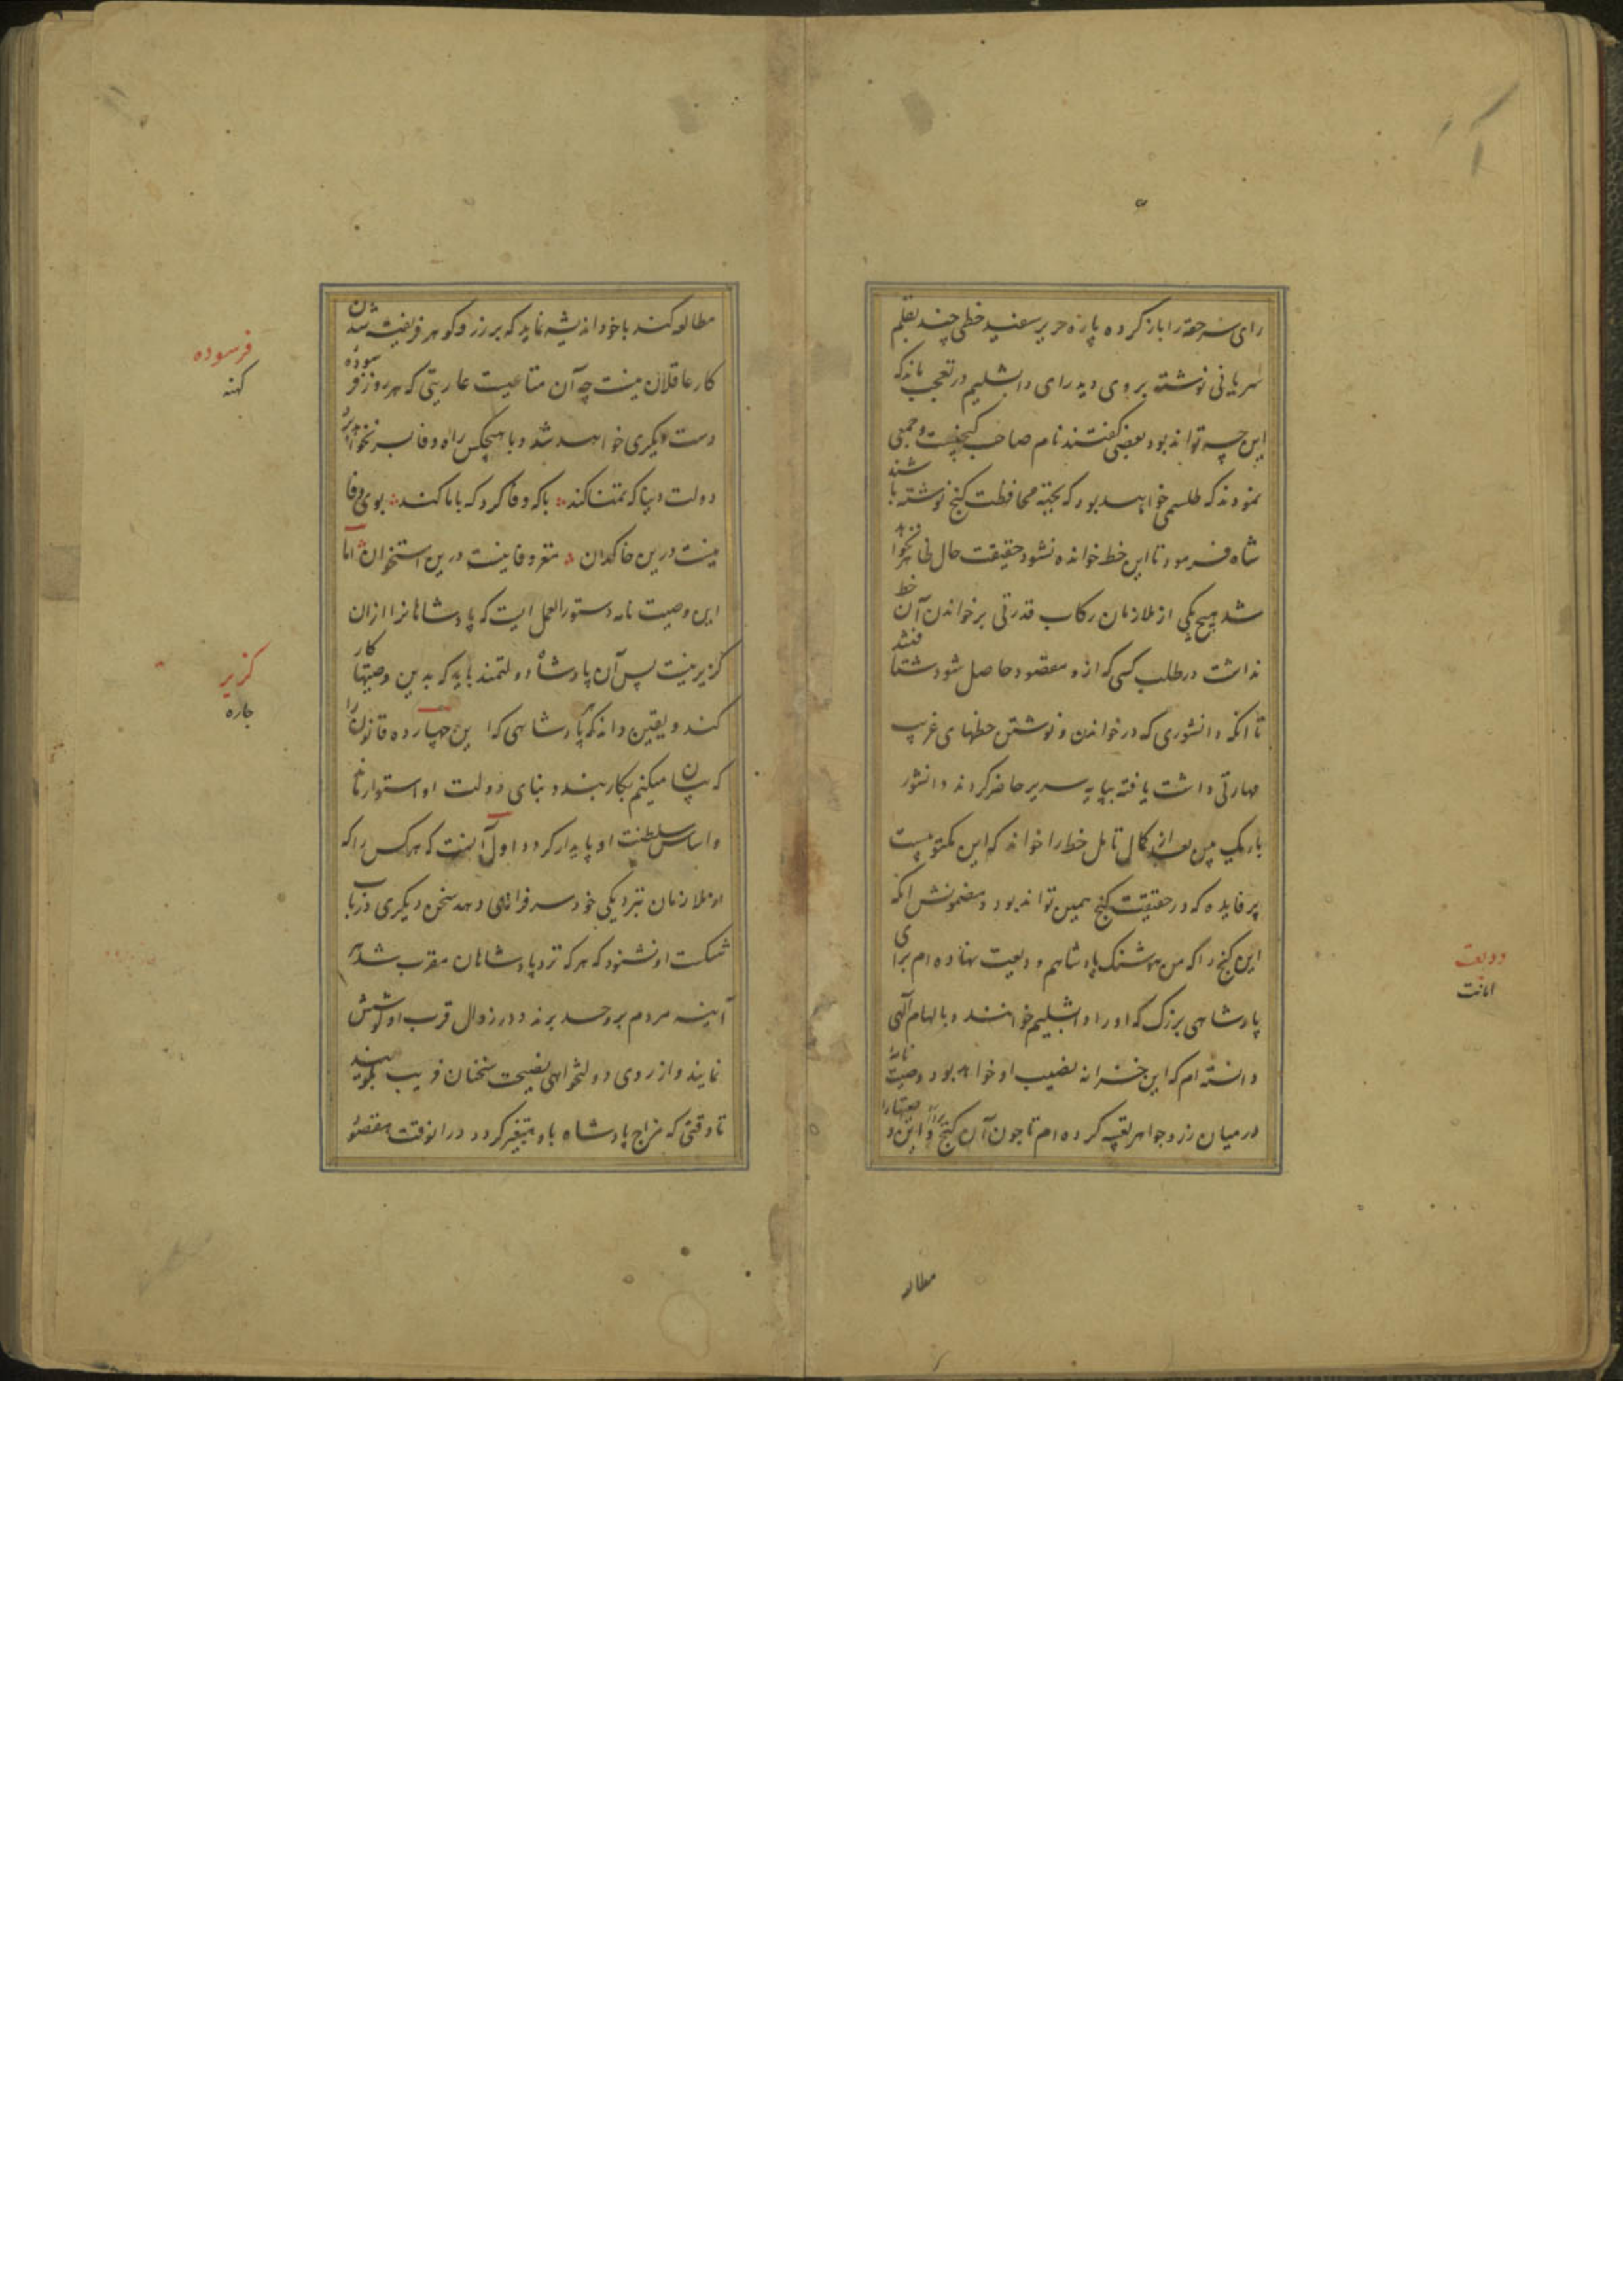 رای سر حقه را باز کرده پاره حریر سفید خطی چند بقلم
سریانی نوشته بر وی دید رای دابشلیم در تعجب ماند که
این چه تواند بود بعضی گفتند نام صاحب گنجست و جمعی
نمودند که طلسمی خواهد بود که بجهته محافظت گنج نوشته باشند
شاه فرمود تا این خط خوانده نشود حقیقت حال ظاهر نخواهد
شد هیچ یکی از ملازمان رکاب قدرتی بر خواندن آن خط
نداشت در طلب کسی که ازو مقصود حاصل شود شتافتند
تا انکه دانشوری که در خواندن و نوشتن خطهای غریب
مهارتی داشت یافته بپایه سریر حاضر کردند دانشور
باریک بین بعد از کمال تامل خط را خواند که این مکتوبیست
پر فایده که در حقیقت گنج همین تواند بود و مضمونش انکه
این گنج را که من هوشنک پادشاهم ودیعت نهاده ام برای
پادشاهی بزرک که او را دابشلیم خوانند و بالهام آلهی
دانسته ام که این خزانه نصیب او خواهد بود وصیت نامهٔ
در میان زر و جواهر تعبیه کرده ام تا چون آن گنج بردارد و این وصیتها را
مطالـ
ودیعت
امانت
مطالعه کند با خود اندیشه نماید که بر زر و گوهر فریفته شدن
کار عاقلان نیست چه آن متاعیست عاریتی که هر روز فرسودهٔ
دست دیگری خواهد شد و با هیچکس راه وفا بسر نخواهد برد
دولت دنیا که تمنا کند با که وفا کرد که با ما کند بوی وفا
نیست درین خاکدان مغز وفا نیست درین استخوان اما
این وصیت نامه دستور العمل ایست که پادشاهانرا ازان
گزیر نیست پس آن پادشاه دولتمند باید که بدین وصیتها کار
کند و یقین داند که پادشاهی که این چهارده قانون را
که بیان میکنم بکار بندد بنای دولت او استوار ماند
و اساس سلطنت او پایدار گردد اول آنست که هر کس را که
از ملازمان بنزدیکی خود سرفرازی دهد سخن دیگری در باب
شکست او نشنود که هر که نزد پادشاهان مقرب شد هر
آینه مردم برو حسد برند و در زوال قرب او کوشش
نمایند و از روی دولتخواهی نصیحت سخنان فریب گویند
تا وقتی که مزاج پادشاه باو متغیر گردد درانوقت مقصود
فرسوده
کهنه
گزیر
چاره